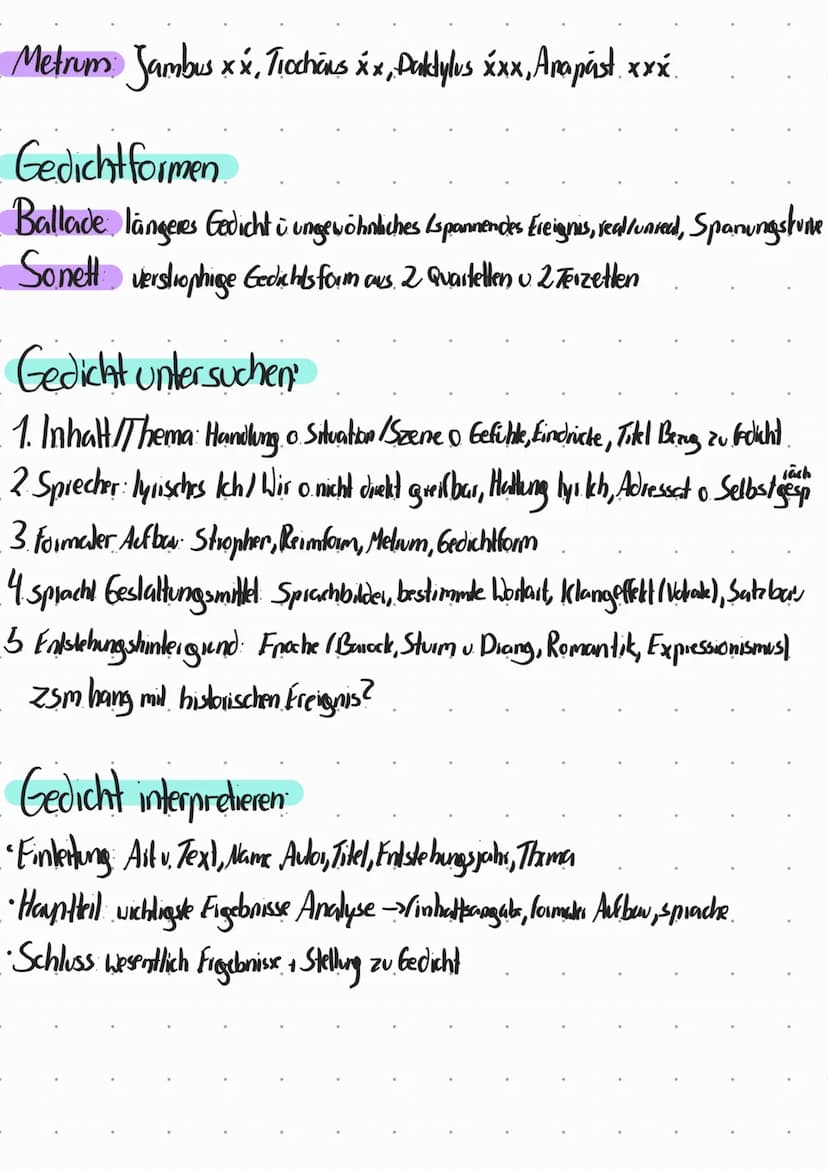 Metrum: Jambus xx́, Trochäus x́x, Daktylus x́xx, Anapäst xxx́
Gedichtformen
Ballade: längeres Gedicht ü ungewöhnliches/spannendes Ereignis, real/unreal, Spanungskurve
Sonett: vierstrophige Gedichtsform aus 2 Quartetten u 2 Terzetten
Gedicht untersuchen:
1. Inhalt/Thema: Handlung o. Situation/Szene o Gefühle, Eindrücke, Titel Bezug zu Gedicht
2. Sprecher: lyrisches Ich/Wir o. nicht direkt greifbar, Haltung lyr. Ich, Adressat o Selbstgespräch
3. Formaler Aufbau: Strophen, Reimform, Metrum, Gedichtform
4. sprachl Gestaltungsmittel: Sprachbilder, bestimmte Wortart, Klangeffekt (Vokale), Satzbau
5 Entstehungshintergrund: Epoche (Barock, Sturm u. Drang, Romantik, Expressionismus)
Zsm hang mit historischen Ereignis?
Gedicht interpretieren:
• Einleitung: Art v. Text, Name Autor, Titel, Entstehungsjahr, Thema
• Hauptteil: wichtigste Ergebnisse Analyse → inhaltsangabe, formaler Aufbau, sprache
• Schluss: wesentlich Ergebnisse + Stellung zu Gedicht